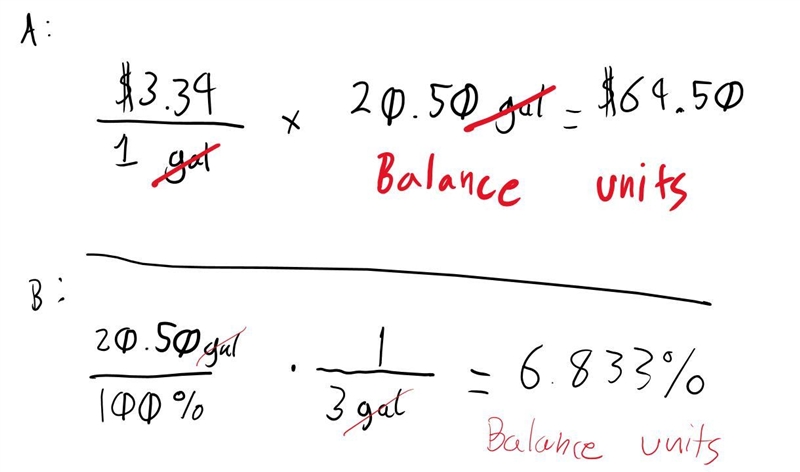 A:
$3.39
1 gal × 20.50 gal = $69.50
Balance units
B:
20.50 gal
100% · 1
3 gal = 6.833%
Balance units